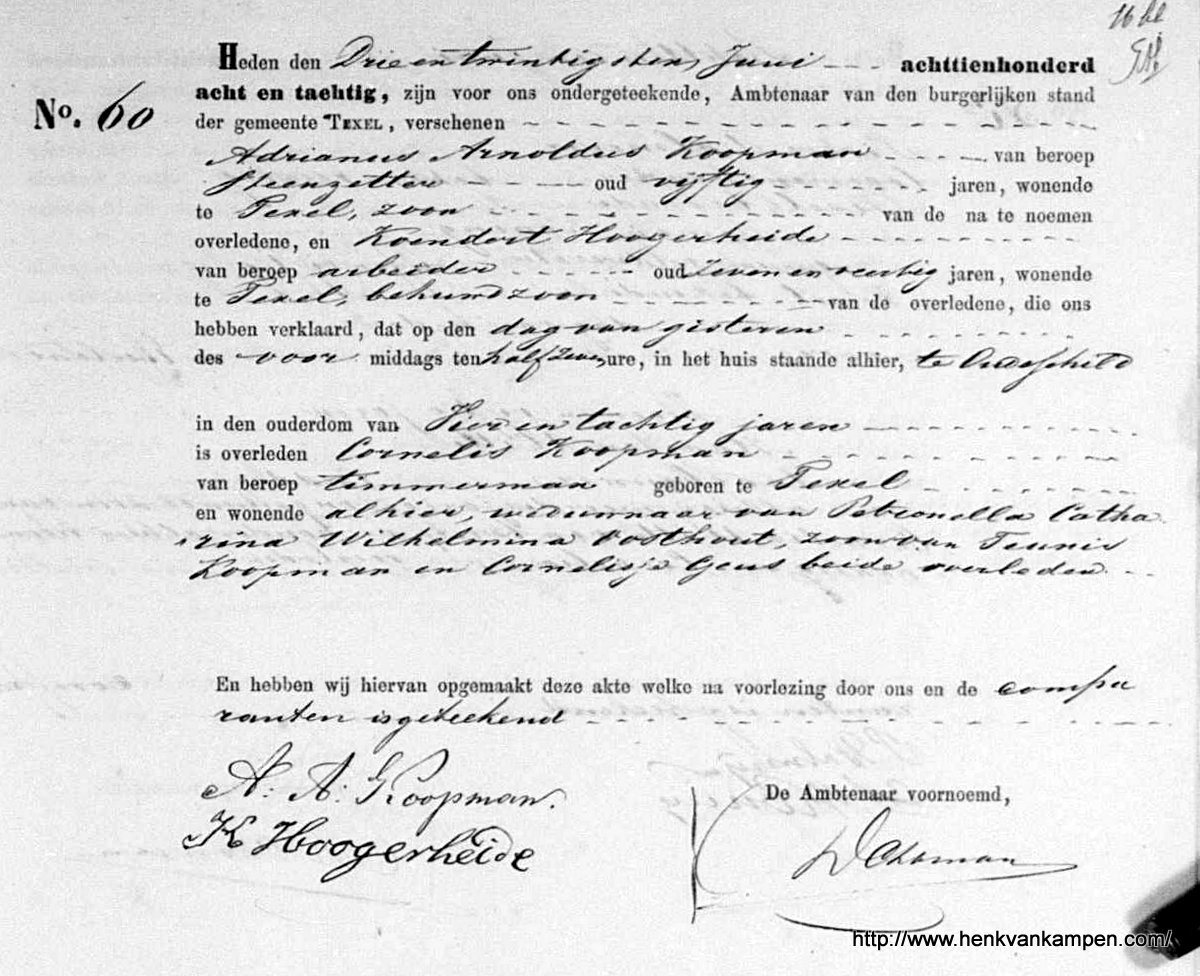 16 bl
Heden den Drie en twintigsten Juni - - - achttienhonderd
No. 60 acht en tachtig, zijn voor ons ondergeteekende, Ambtenaar van den burgerlijken stand
der gemeente TEXEL, verschenen
Adrianus Arnoldus Koopman van beroep
Steenzetter oud vijftig jaren, wonende
te Texel, zoon van de na te noemen
overledene, en Koendert Hoogerheide
van beroep arbeider oud zeven en veertig jaren, wonende
te Texel, behuwdzoon van de overledene, die ons
hebben verklaard, dat op den dag van gisteren
des voor middags ten half zeven ure, in het huis staande alhier, te Oudeschild
in den ouderdom van Vier en tachtig jaren
is overleden Cornelis Koopman
van beroep timmerman geboren te Texel
en wonende alhier, weduwnaar van Petronella Catha
rina Wilhelmina Oosthout, zoon van Teunis
Koopman en Cornelisje Geus beide overleden
En hebben wij hiervan opgemaakt deze akte welke na voorlezing door ons en de compa
ranten is geteekend
A. A. Koopman.
K Hoogerheide
De Ambtenaar voornoemd,
http://www.henkvankampen.com/